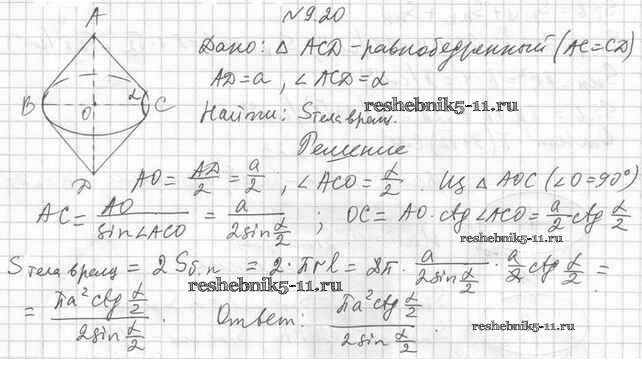 N 9.20
A
B
C
D
O
α
Дано: △ ACD - равнобедренный (AC=CD)
AD=a, ∠ACD=α
Найти: Sтела вращ.
reshebnik5-11.ru
Решение
AO = AD/2 = a/2, ∠ACO = α/2. Из △ AOC (∠O=90°)
AC = AO/sin∠ACO = a/2sin α/2; OC = AO·ctg∠ACO = a/2 ctg α/2
reshebnik5-11.ru
Sтела вращ = 2Sб.п = 2·πrl = 2π · a/2sin α/2 · a/2 ctg α/2 =
reshebnik5-11.ru
= πa² ctg α/2 / 2sin α/2. Ответ: πa² ctg α/2 / 2sin α/2.
reshebnik5-11.ru